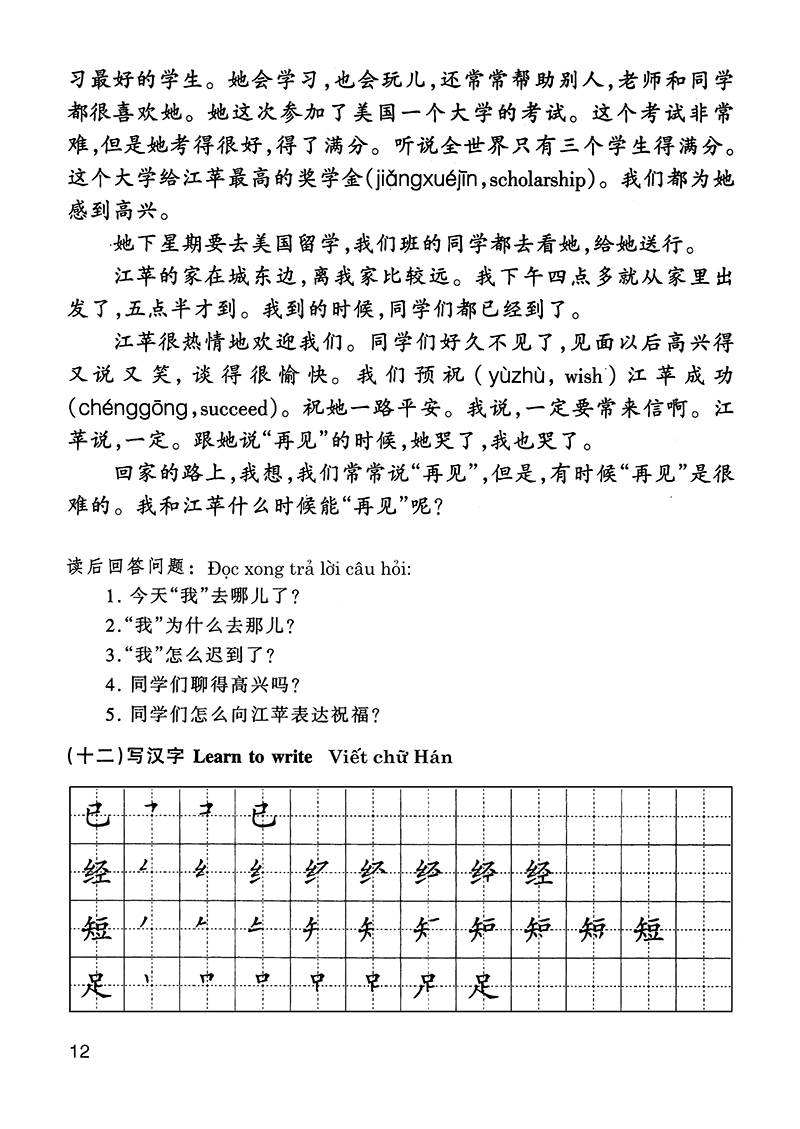 习最好的学生。她会学习，也会玩儿，还常常帮助别人，老师和同学
都很喜欢她。她这次参加了美国一个大学的考试。这个考试非常
难，但是她考得很好，得了满分。听说全世界只有三个学生得满分。
这个大学给江苹最高的奖学金(jiǎngxuéjīn，scholarship)。我们都为她
感到高兴。
她下星期要去美国留学，我们班的同学都去看她，给她送行。
江苹的家在城东边，离我家比较远。我下午四点多就从家里出
发了，五点半才到。我到的时候，同学们都已经到了。
江苹很热情地欢迎我们。同学们好久不见了，见面以后高兴得
又说又笑，谈得很愉快。我们预祝(yùzhù, wish)江苹成功
(chénggōng，succeed)。祝她一路平安。我说，一定要常来信啊。江
苹说，一定。跟她说“再见”的时候，她哭了，我也哭了。
回家的路上，我想，我们常常说“再见”，但是，有时候“再见”是很
难的。我和江苹什么时候能“再见”呢？
读后回答问题： Đọc xong trả lời câu hỏi:
1. 今天“我”去哪儿了？
2.“我”为什么去那儿？
3.“我”怎么迟到了？
4. 同学们聊得高兴吗？
5. 同学们怎么向江苹表达祝福？
(十二)写汉字 Learn to write Viết chữ Hán
已 已
经 经
短 短
足 足
12